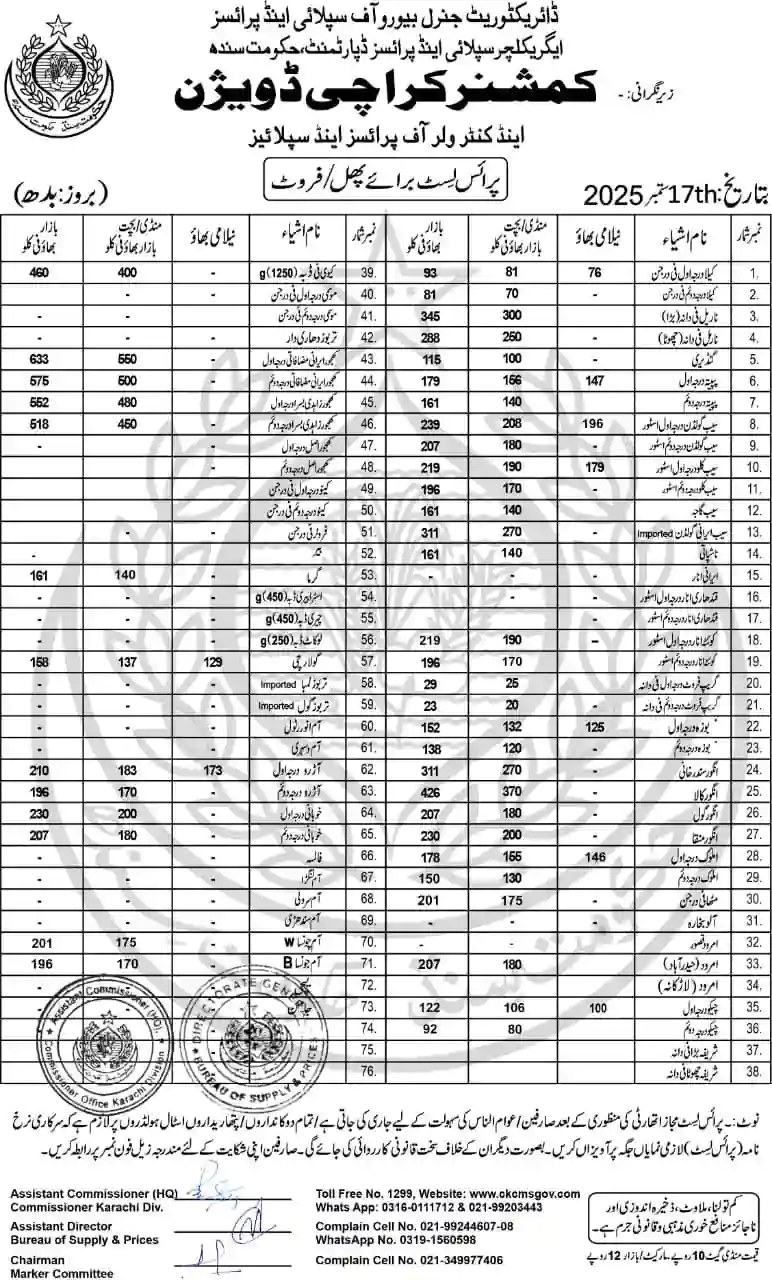 ڈائریکٹوریٹ جنرل بیورو آف سپلائی اینڈ پرائسز
ایگریکلچر سپلائی اینڈ پرائسز ڈپارٹمنٹ، حکومت سندھ
زیر نگرانی:- کمشنر کراچی ڈویژن
اینڈ کنٹرولر آف پرائسز اینڈ سپلائیز
پرائس لسٹ برائے پھل/فروٹ
بتاریخ: 17th ستمبر 2025 (بروز: بدھ)
نمبر شمار نام اشیاء نیلامی بھاؤ منڈی/بچت بازار بھاؤ فی کلو بازار بھاؤ فی کلو
1. کیلا درجہ اول فی درجن 76 81 93
2. کیلا درجہ دوئم فی درجن - 70 81
3. ناریل فی دانہ (بڑا) - 300 345
4. ناریل فی دانہ (چھوٹا) - 250 288
5. گنڈیری - 100 115
6. پپیتہ درجہ اول 147 156 179
7. پپیتہ درجہ دوئم - 140 161
8. سیب گولڈن درجہ اول اسٹور 196 208 239
9. سیب گولڈن درجہ دوئم اسٹور - 180 207
10. سیب کلو درجہ اول اسٹور 179 190 219
11. سیب کلو درجہ دوئم اسٹور - 170 196
12. سیب گاجہ 140 161
13. سیب ایرانی گولڈن Imported - 270 311
14. ناشپاتی 140 161
15. ایرانی انار - - -
16. قندھاری انار درجہ اول اسٹور - - -
17. قندھاری انار درجہ دوئم اسٹور - - -
18. کوئٹہ انار درجہ اول اسٹور - 190 219
19. کوئٹہ انار درجہ دوئم اسٹور 170 196
20. گریپ فروٹ درجہ اول فی دانہ - 25 29
21. گریپ فروٹ درجہ دوئم فی دانہ - 20 23
22. بوزہ درجہ اول 125 132 152
23. بوزہ درجہ دوئم 120 138
24. انگور سندرخانی - 270 311
25. انگور کالا - 370 426
26. انگور گول - 180 207
27. انگور منقا - 200 230
28. املوک درجہ اول 146 155 178
29. املوک درجہ دوئم - 130 150
30. مٹھائی درجن - 175 201
31. آلو بخارہ - - -
32. امرود قصور - -
33. امرود (حیدرآباد) 180 207
34. امرود (لاڑکانہ)
35. چیکو درجہ اول 100 106 122
36. چیکو درجہ دوئم 80 92
37. شریفہ بڑا فی دانہ
38. شریفہ چھوٹا فی دانہ
نمبر شمار نام اشیاء نیلامی بھاؤ منڈی/بچت بازار بھاؤ فی کلو بازار بھاؤ فی کلو
39. کیوی فی ڈبہ (1250)g - 400 460
40. موسمی درجہ اول فی درجن - -
41. موسمی درجہ دوئم فی درجن - -
42. تربوز دھاری دار - - -
43. کھجور ایرانی مضافاتی درجہ اول - 550 633
44. کھجور ایرانی مضافاتی درجہ دوئم - 500 575
45. کھجور زاہدی بسرا درجہ اول 480 552
46. کھجور زاہدی بسرا درجہ دوئم - 450 518
47. کھجور اصل درجہ اول -
48. کھجور اصل درجہ دوئم - -
49. کینو درجہ اول فی درجن
50. کینو درجہ دوئم فی درجن
51. فروٹر فی درجن - -
52. بیر -
53. گرما 140 161
54. اسٹرابیری ڈبہ (450)g - - -
55. چیری ڈبہ (450)g
56. لوکاٹ ڈبہ (250)g - - -
57. گولارچی 129 137 158
58. تربوز لمبا Imported - - -
59. تربوز گول Imported - - -
60. آم انور رٹول - - -
61. آم دسہری - - -
62. آڑو درجہ اول 173 183 210
63. آڑو درجہ دوئم - 170 196
64. خوبانی درجہ اول - 200 230
65. خوبانی درجہ دوئم - 180 207
66. فالسہ - - -
67. آم لنگڑا - - -
68. آم سرولی - - -
69. آم سندھڑی - - -
70. آم چونسا W - 175 201
71. آم چونسا B - 170 196
72.
73.
74.
75.
76.
Assistant Commissioner (HQ). Commissioner Office Karachi Division
DIRECTORATE GENERAL BUREAU OF SUPPLY & PRICES
نوٹ:- پرائس لسٹ مجاز اتھارٹی کی منظوری کے بعد صارفین/عوام الناس کی سہولت کے لیے جاری کی جاتی ہے/تمام دوکانداروں/پتھاریداروں/اسٹال ہولڈروں پر لازم ہے کہ سرکاری نرخ
نامہ (پرائس لسٹ) لازمی نمایاں جگہ پر آویزاں کریں۔ بصورت دیگر ان کے خلاف سخت قانونی کارروائی کی جائے گی۔ صارفین اپنی شکایت کے لئے مندرجہ زیل فون نمبر پر رابطہ کریں۔
Assistant Commissioner (HQ)
Commissioner Karachi Div.
Assistant Director
Bureau of Supply & Prices
Chairman
Marker Committee
Toll Free No. 1299, Website: www.okcmsgov.com
Whats App: 0316-0111712 & 021-99203443
Complain Cell No. 021-99244607-08
WhatsApp No. 0319-1560598
Complain Cell No. 021-349977406
کم تولنا، ملاوٹ، ذخیرہ اندوزی اور
ناجائز منافع خوری مذہبی و قانونی جرم ہے۔
قیمت منڈی گیٹ 10 روپے۔ مارکیٹ/بازار 12 روپے